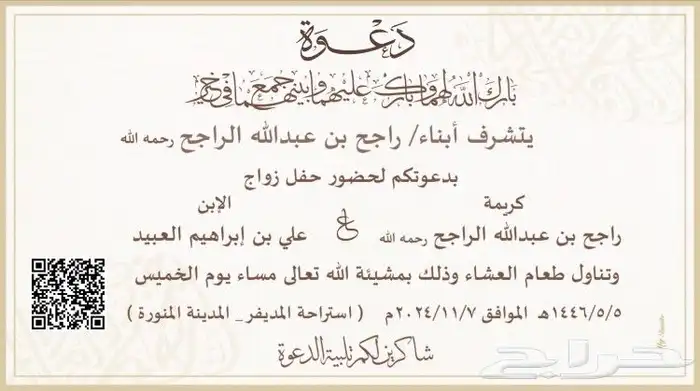 دعوة
بارك الله لهما وبارك عليهما وجمع بينهما في خير
يتشرف أبناء/ راجح بن عبدالله الراجح رحمه الله
بدعوتكم لحضور حفل زواج
كريمة الإبن
راجح بن عبدالله الراجح رحمه الله على علي بن إبراهيم العبيد
وتناول طعام العشاء وذلك بمشيئة الله تعالى مساء يوم الخميس
١٤٤٦/٥/٥هـ الموافق ٢٠٢٤/١١/٧م ( استراحة المديفر_ المدينة المنورة )
شاكرين لكم تلبية الدعوة
حراج